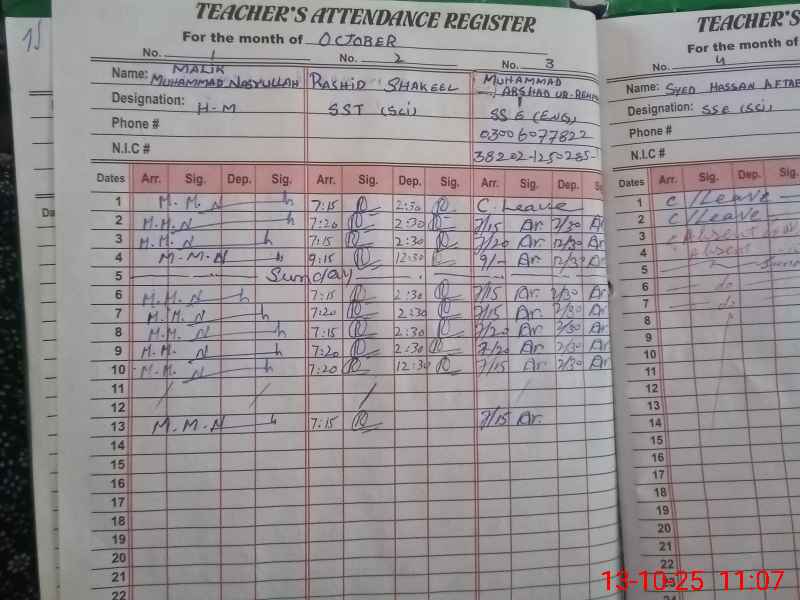 15
TEACHER'S ATTENDANCE REGISTER
For the month of OCTOBER
No. 1 No. 2 No. 3
Name: MALIK MUHAMMAD NASYULLAH RASHID SHAKEEL MUHAMMAD ARSHAD UR-REHM
Designation: H-M SST (Sci) SSE (ENG)
Phone # 03006077822
N.I.C # 38202-1250285-1
Dates Arr. Sig. Dep. Sig. Arr. Sig. Dep. Sig. Arr. Sig. Dep. Si
1 M.M.N 7:15 2:30 C. Leave
2 M.M.N 7:20 2:30 7/15 Ar 2/30 Ar
3 M.M.N 7:15 2:30 7/20 Ar 12/30 Ar
4 M.M.N 9:15 12:30 9/- Ar 12/30 Ar
5 Sunday
6 M.M.N 7:15 2:30 7/15 Ar. 2/30 Ar
7 M.M.N 7:20 2:30 7/15 Ar. 2/30 Ar
8 M.M.N 7:15 2:30 7/20 Ar 2/30 Ar
9 M.M. N 7:20 2:30 7/20 Ar 2/30 Ar
10 M.M. N 7:20 12:30 7/15 Ar 2/30 Ar
11
12
13 M.M.N 7:15 7/15 Ar.
14
15
16
17
18
19
20
21
22
TEACHER'S
For the month of
No. 4
Name: SYED HASSAN AFTAB
Designation: SSE (SCi)
Phone #
N.I.C #
Dates Arr. Sig. Dep. Sig.
1 C/Leave
2 C/Leave
3 Absent
4 Absent
5
6 do
7 do
8
9
10
11
12
13
14
15
16
17
18
19
20
21
22
23
13-10-25 11:07